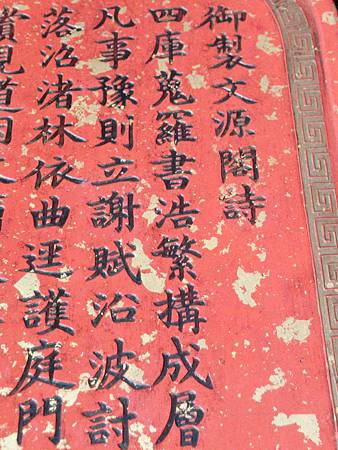 御製文源閣詩
四庫蒐羅書浩繁構成層
凡事豫則立謝賦沿波討
落沼渚林依曲逕護庭門
賞見道因